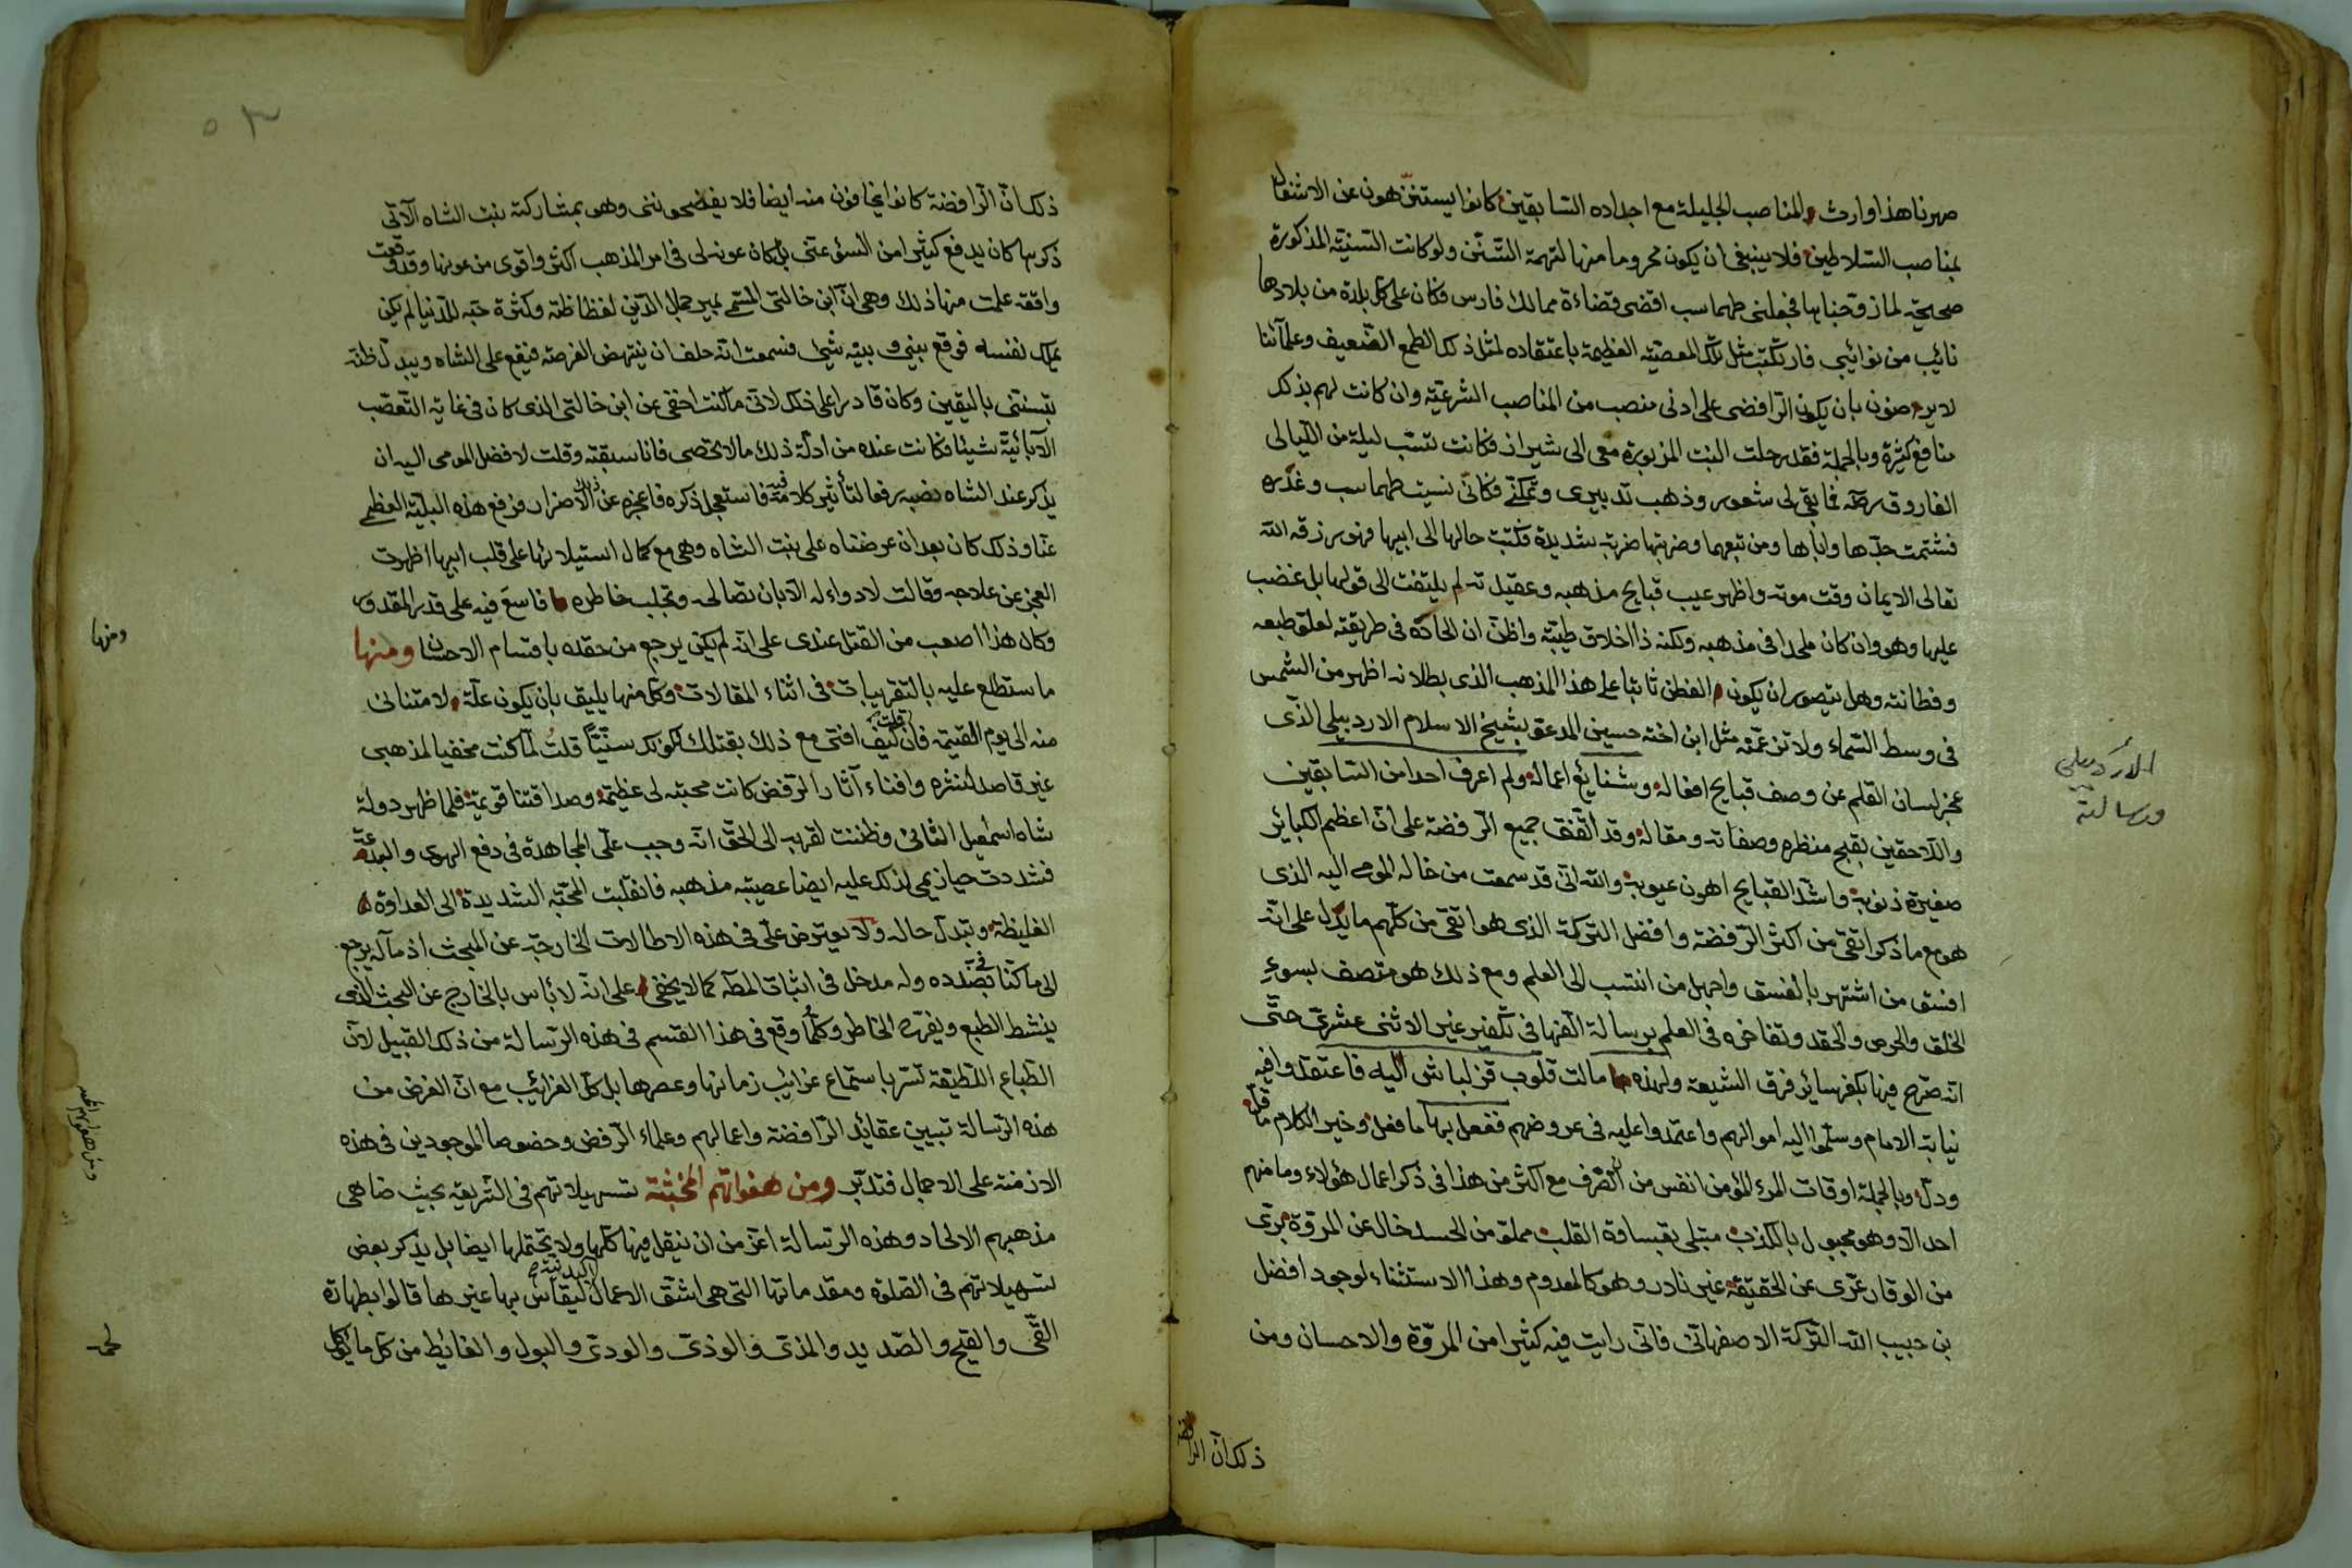 صهرنا هذا وارث المناصب الجليلة مع اجداده السابقين كانوا يستنزهون عن الاشتغال
بمناصب السلاطين فلا ينبغى ان يكون محروما منها لتهمة التسنن ولو كانت التسنية المذكورة
صحيحة لما زوجناها فجعلنى طهماسب اقضى قضاءة ممالك فارس فكان على كل بلدة من بلادها
نائب من نوائبى فارتكبت مثل تلك المعصية العظيمة باعتقاده لمثل ذلك الطمع الضعيف وعلمائنا
لا يرضون بان يكون الرافضى على ادنى منصب من المناصب الشرعية وان كانت لهم بذلك
منافع كثيرة وبالجملة فقد رحلت البنت المزبورة معى الى شيراز فكانت تسب ليلة من الليالى
الفاروق رضه فما بقى لى شعور وذهب تدبيرى وتمكنى فكانى نسيت طهماسب وغدره
فشتمت جدها واباها ومن تبعهما وضربتها ضربة شديدة فكتبت حالها الى ابيها فهو رزقه الله
تعالى الايمان وقت موته واظهر عيب قبايح مذهبه وعقيدته لم يلتفت الى قولها بل غضب
عليها وهو وان كان ملحدا فى مذهبه ولكنه ذا اخلاق طيبة واظن ان الحاده فى طريقته لعلو طبعه
وفطانته وهل يتصور ان يكون الفطن ثابتا على هذا المذهب الذى بطلانه اظهر من الشمس
فى وسط السماء ولا تزعمه مثل ابن اخته حسين المدعو بشيخ الاسلام الاردبيلى الذى
عجز لسان القلم عن وصف قبايح افعاله وشنايع اعماله ولم اعرف احدا من السابقين
واللاحقين بقبح منظره وصفاته ومقاله وقد اتفق جميع الرفضة على ان اعظم الكبائر
صغيرة ذنوبه واشد القبايح اهون عيوبه والله انى قد سمعت من خاله المومى اليه الذى
هو مع ما ذكر اتقى من اكثر الرفضة وافضل التركة الذى هو اتقى من كلهم ما يدل على انه
افسق من اشتهر بالفسق واجهل من انتسب الى العلم ومع ذلك هو متصف بسوء
الخلق والحرص والحقد وتفاخره فى العلم برسالة الفها فى تكفير غير الاثنى عشرى حتى
انه صرح فيها بكفر سائر فرق الشيعة ولهذه مالت قلوب قزلباش اليه فاعتقدوا فيه
نيابة الامام وسلموا اليه اموالهم واعتمدوا عليه فى عروضهم ففعل بها ما فعل وخير الكلام ما قل
ودل وبالجملة اوقات المرء المؤمن انفس من ان يصرف مع اكثر من هذا فى ذكر اعمال هؤلاء وما منهم
احد الا وهو مجبول بالكذب مبتلى بقساوة القلب مملو من الحسد خال عن المروة برى
من الوقار عرى عن الحقيقة غير نادر وهو كالمعدوم وهذا الاستثناء لوجود افضل
بن حبيب الله التركة الاصفهانى فانى رايت فيه كثيرا من المروة والاحسان ومن
ذلك ان الرافضة
الأردبيلي
ورسالته
٥٣
ذلك ان الرافضة كانوا يخافون منه ايضا فلا يفضحوننى وهو بمشاركة بنت الشاه الآتى
ذكرها كان يدفع كثيرا من السوء عنى بل كان عونه لى فى امر المذهب اكثر واقوى من عونها وقد وقعت
واقعة علمت منها ذلك وهى ان ابن خالتى المسمى بمير جمال الدين لفظاظته وكثرة حبه للدنيا لم يكن
يملك نفسه فوقع بينى وبينه شىء فسمعت انه حلف ان ينتهض الفرصة فيقع على الشاه ويبدل ظنه
بتسننى باليقين وكان قادرا على ذلك لانى ما كنت اخفى عن ابن خالتى الذى كان فى غاية التعصب
الآبائية شيئا فكانت عنده من ادلة ذلك ما لا تحصى فانا سبقته وقلت لافضل المومى اليه ان
يذكر عند الشاه نصبه رفعا لتأثير كلامه فيه فاستعجل ذكره فاعجزه عن ذلك الاضرار فرفع هذه البلية العظمى
عنا وذلك كان بعد ان عرضناه على بنت الشاه وهى مع كمال استيلائها على قلب ابيها اظهرت
العجز عن علاجه وقالت لا دواء له الا بان تصالحه وتجلب خاطره فاسع فيه على قدر المقدور
وكان هذا اصعب من القتل عندى على انه لم يكن يرجع من حقده باقسام الاحسان ومنها
ما ستطلع عليه بالتقريبات فى اثناء المقالات وكل منها يليق بان يكون علة لامتنانى
منه الى يوم القيمة فان قلت كيف افتى مع ذلك بقتلك لكونك سنيا قلت لما كنت مخفيا لمذهبى
غير قاصد لنشره وافناء آثار الرفض كانت محبته لى عظيمة وصداقتنا قويمة فلما ظهر دولة
شاه اسمعيل الثانى وظننت لقربه الى الحق انه وجب على المجاهدة فى دفع الهوى والبدعة
فشددت حيازيمى لذلك عليه ايضا عصبية مذهبه فانقلبت المحبة الشديدة الى العداوة
الغليظة وتبدل حاله ولا يعترض على فى هذه الاطالات الخارجة عن المبحث اذ مآله يرجع
الى ما كنا فى تصدده وله مدخل فى اثبات المطه كما لا يخفى على انه لا بأس بالخارج عن البحث الذى
ينشط الطبع ويفرح الخاطر وكلما وقع فى هذا القسم فى هذه الرسالة من ذلك القبيل لان
الطباع اللطيفة تسر باستماع غرائب زمانها وعصرها بل كل الغرائب مع ان الغرض من
هذه الرسالة تبيين عقائد الرافضة واعمالهم وعلماء الرفض وخصوصا الموجودين فى هذه
الازمنة على الاجمال فتدبر ومن هفواتهم المخبثة تسهيلاتهم فى الشريعة بحيث ضاهى
مذهبهم الالحاد وهذه الرسالة اعز من ان ينقل فيها كلها ولا يحتملها ايضا بل يذكر بعض
تسهيلاتهم فى الصلوة ومقدماتها التى هى اشق الاعمال البدنية ليقاس بها غيرها قالوا بطهارة
القىء والقيح والصديد والمذى والوذى والودى والبول والغايط من كل ما يؤكل
ومنها
ومن هفواتهم المخبثة
لحمه